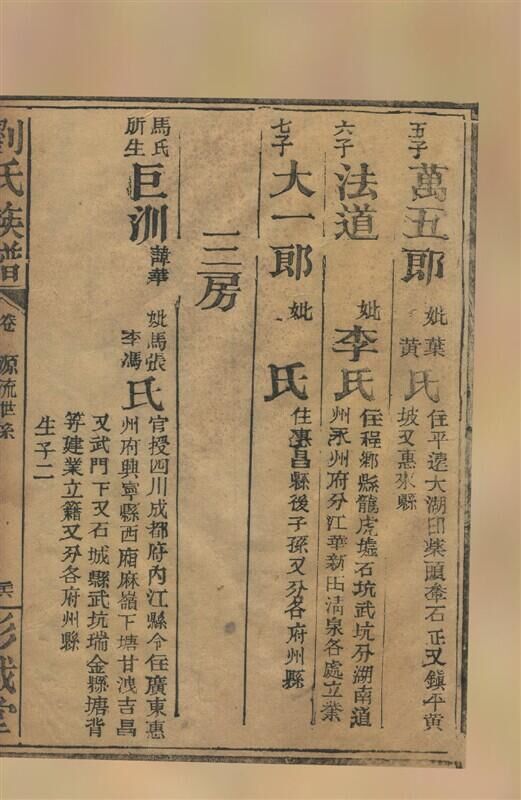 五子
萬五郎
妣葉黃氏
住平遠大湖印柴頭崟石正又鎮平黃
坡又惠來縣
六子
法道
妣李氏
住程鄉縣龍虎墟石坑武坑分湖南道
州永州府分江華新田清泉各處立業
七子
大一郎
妣氏
住遂昌縣後子孫又分各府州縣
三房
馬氏
所生
巨洲
諱華
妣馬張
李馮
氏
官授四川成都府內江縣令住廣東惠
州府興寧縣西廂麻嶺下塘甘洩吉昌
又武門下又石城縣武坑瑞金縣塘背
等建業立籍又分各府州縣
生子二
劉氏族譜
卷
源流世系
彭城堂